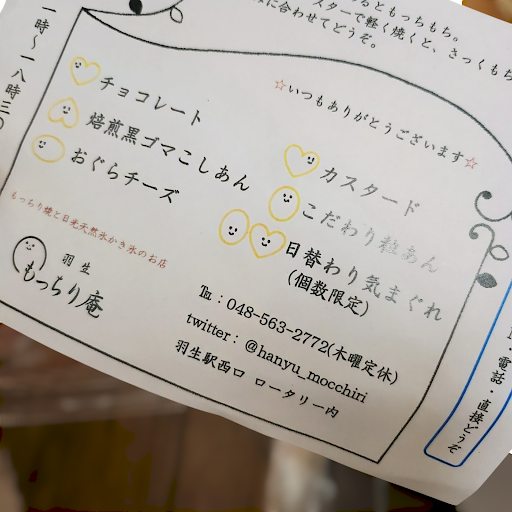 るともっちもち。
スターで軽く焼くと、さっくもち
に合わせてどうぞ。
☆いつもありがとうございます☆
カスタード
こだわり粒あん
日替わり気まぐれ
(個数限定)
チョコレート
焙煎黒ゴマこしあん
おぐらチーズ
もっちり焼と日光天然氷かき氷のお店
羽生
もっちり庵
℡：048-563-2772(木曜定休)
twitter：@hanyu_mocchiri
羽生駅西口 ロータリー内
一時～一八時三〇
電話・直接どうぞ